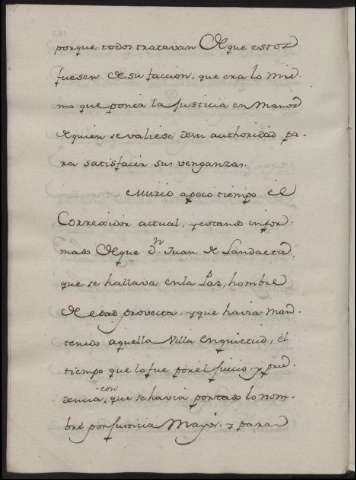 porque todos tratavan de que estos
fuesen de su faccion, que era lo mis-
mo que poner la Justicia en manos
de quien se valiese de su authoridad pa-
ra satisfacer sus venganzas.
Murio a poco tiempo el
Corregidor actual, y estando infor-
mado de que Dn Juan de Landaeta
que se hallava en la Paz, hombre
de edad provecta, y que havia man-
tenido aquella Villa en quietud, el
tiempo que la fue por el juicio, y pru-
dencia, con que se havia portado lo nom-
bré por Justicia Mayor, y para